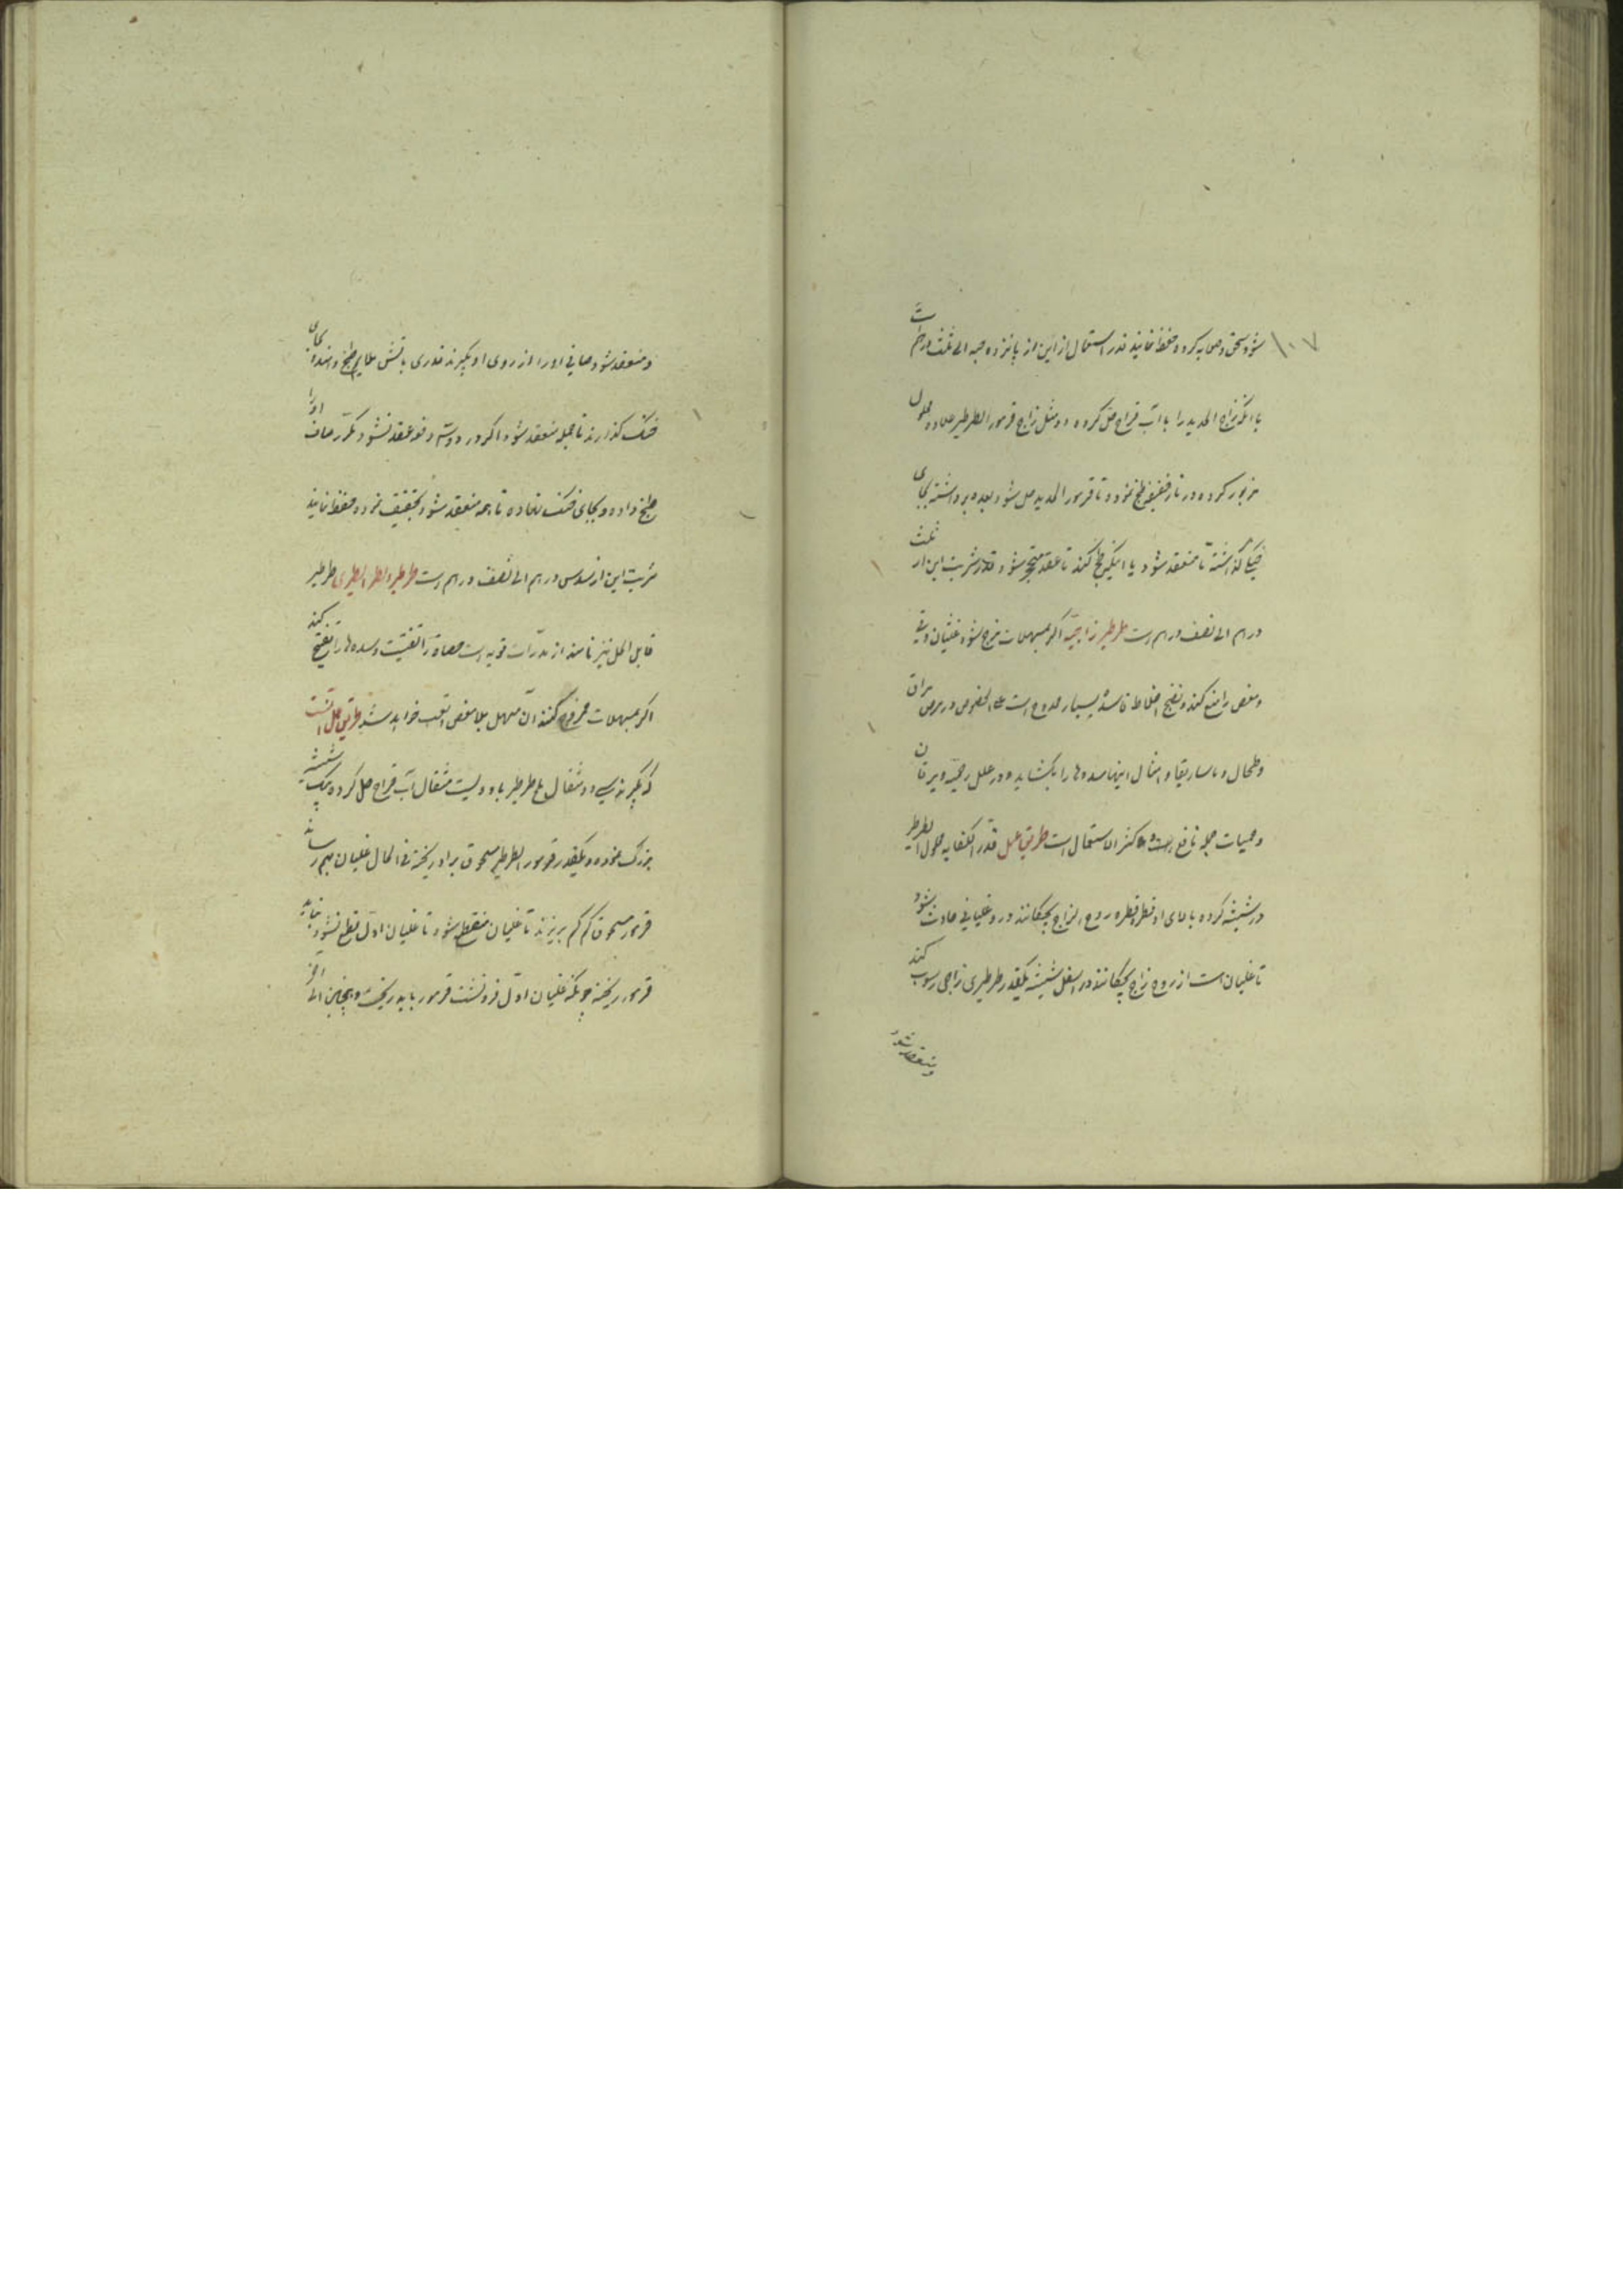 ۱۰۷
شود سحق و صلایه کرده حفظ نمایند قدر استعمال از این از پانزده حبه الی ثلث درهم است
یا انکه زاج الحدید را با آب قراح حل کرده دو مثل زاج قرمور الطرطیر علاوه محلول
مزبور کرده در نار خفیفه طبخ نموده تا قرمور الحدید حل شود بعده برداشته بجای
گذاشته تا منعقد شود یا اینکه طبخ کنند تا عقد شود و قدر شربت این از ثلث
درهم الی نصف درهم است طرطیر زاجیه اکر بمسهلات مزج شود غثیان و قی
و مغص را منع کند و نضج اخلاط فاسده بسیار ممدوح است علی الخصوص در مرض مراق
و طحال و ماساریقا و امثال اینها سده‌ها را بکشاید و در علل رحمیه و یرقان
و حمیات جمله نافع کثیر الاستعمال است طریق عمل قدر الکفایه محلول الطرطیر
در شیشه کرده بالای او قطره قطره روح الزاج بچکانند در او غلیانی حادث شود
تا غلیان است از روح زاج بچکانند در اسفل شیشه یکقدر طرطیری زاجی رسوب کند
و منعقد شود
و منعقد شود صافی او را از روی او بکیرند قدری باتش ملایم طبخ داده بجای
خنک کذارند تا جمله منعقد شود اکر در دو سه دفعه عقد نشود مکرر صاف او را
طبخ داده و بجای خنک نهاده تا همه منعقد شود تجفیف نموده حفظ نمایند
شربت این از سدس درهم الی نصف درهم است طرطیر الطرطیری طرطیر
قابل الحل نیز نامند از مدرات قویه است حصاة را تفتیت و سده‌ها را تفتیح کند
اکر بمسهلات ممزوج کنند آن مسهل بلا مغص و تعب خواهد شد طریق عمل آنست
که بکیرند سی و دو مثقال ملح طرطیر با دویست مثقال آب قراح حل کرده بیک شیشه
بزرک نموده و یکقدر قرمور الطرطیر مسحوق بر او ریخته فی الحال غلیان بهم رساند
قرمور مسحوق کم کم بریزند تا غلیان منقطع شود تا غلیان اول قطع نشود نباید
قرمور ریخته چونکه غلیان اول فرو نشست قرمور باید ریخت و همچنین الی آخر